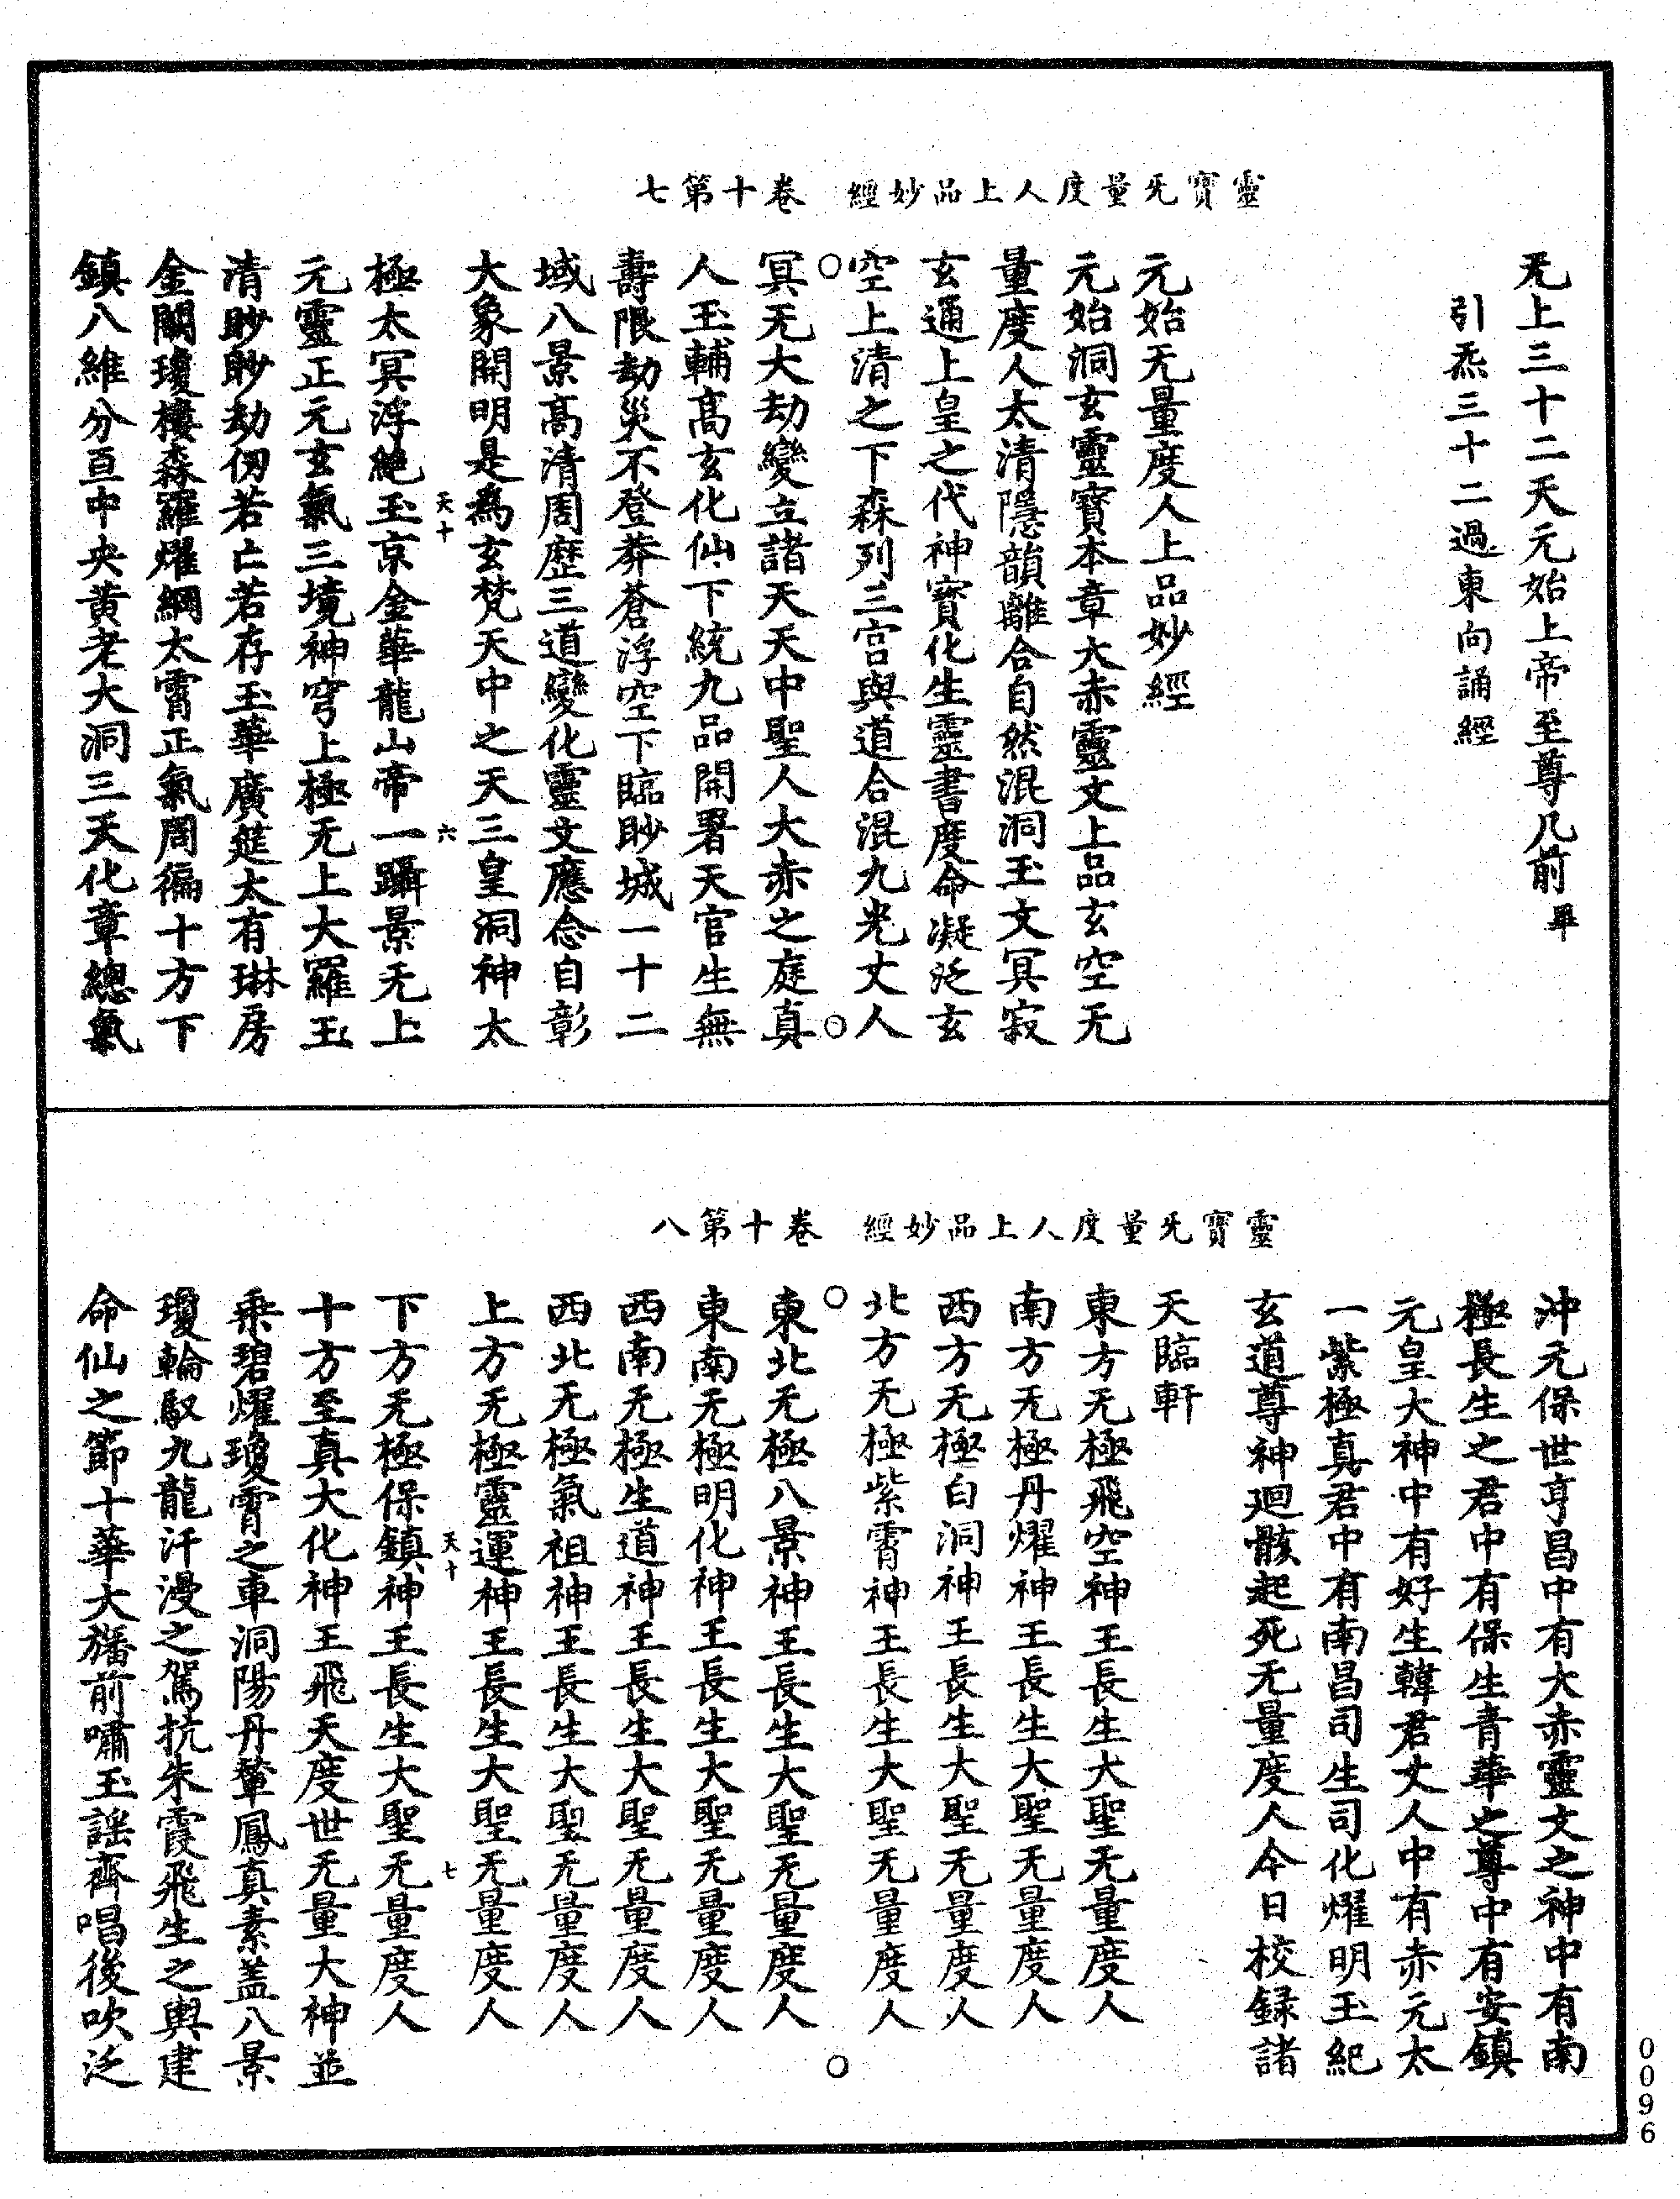 靈寶无量度人上品妙經　卷十第七
无上三十二天元始上帝至尊几前畢
引炁三十二過東向誦經
元始无量度人上品妙經
元始洞玄靈寶本章大赤靈文上品玄空无
量度人太清隱韻離合自然混洞玉文冥寂
玄通上皇之代神寶化生靈書度命凝泛玄
空上清之下森列三宮與道合混九光丈人
冥无大劫變立諸天天中聖人大赤之庭真
人玉輔高玄化仙下統九品開署天官生無
壽限劫災不登莽蒼浮空下臨眇城一十二
域八景高清周歷三道變化靈文應念自彰
大象開明是為玄梵天中之天三皇洞神太
天十　六
極太冥浮絕玉京金華龍山帝一躡景无上
元靈正元玄氣三境神穹上極无上大羅玉
清眇眇劫仞若亡若存玉華廣筵太有琳房
金闕瓊樓森羅燿綱太霄正氣周徧十方下
鎮八維分亘中央黃老大洞三天化章總氣
靈寶无量度人上品妙經　卷十第八
沖元保世亨昌中有大赤靈文之神中有南
極長生之君中有保生青華之尊中有安鎮
元皇大神中有好生韓君丈人中有赤元太
一紫極真君中有南昌司生司化燿明玉紀
玄道尊神迴骸起死无量度人今日校錄諸
天臨軒
東方无極飛空神王長生大聖无量度人
南方无極丹燿神王長生大聖无量度人
西方无極白洞神王長生大聖无量度人
北方无極紫霄神王長生大聖无量度人
東北无極八景神王長生大聖无量度人
東南无極明化神王長生大聖无量度人
西南无極生道神王長生大聖无量度人
西北无極氣祖神王長生大聖无量度人
上方无極靈運神王長生大聖无量度人
天十　七
下方无極保鎮神王長生大聖无量度人
十方至真大化神王飛天度世无量大神並
乘碧燿瓊霄之車洞陽丹輦鳳真素蓋八景
瓊輪馭九龍汗漫之駕抗朱霞飛生之輿建
命仙之節十華大旛前嘯玉謠齊唱後吹泛
0096